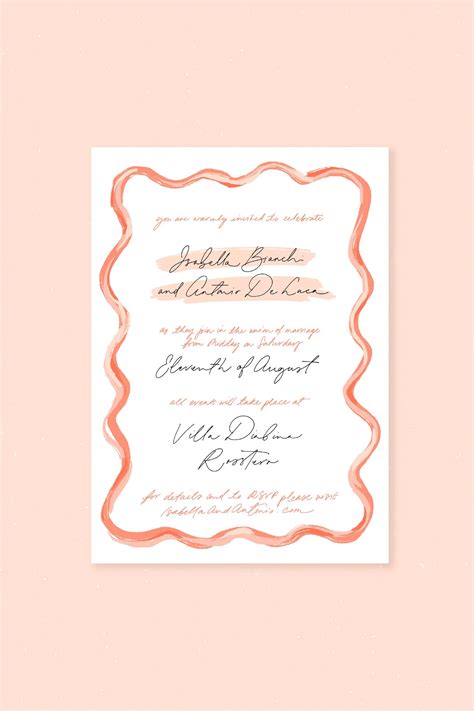 you are warmly invited to celebrate
Isabella Bianchi
and Antonio De Luca
as they join in the union of marriage
from Midday on Saturday
Eleventh of August
all events will take place at
Villa
for details and to RSVP please visit
IsabellaAndAntonio.com